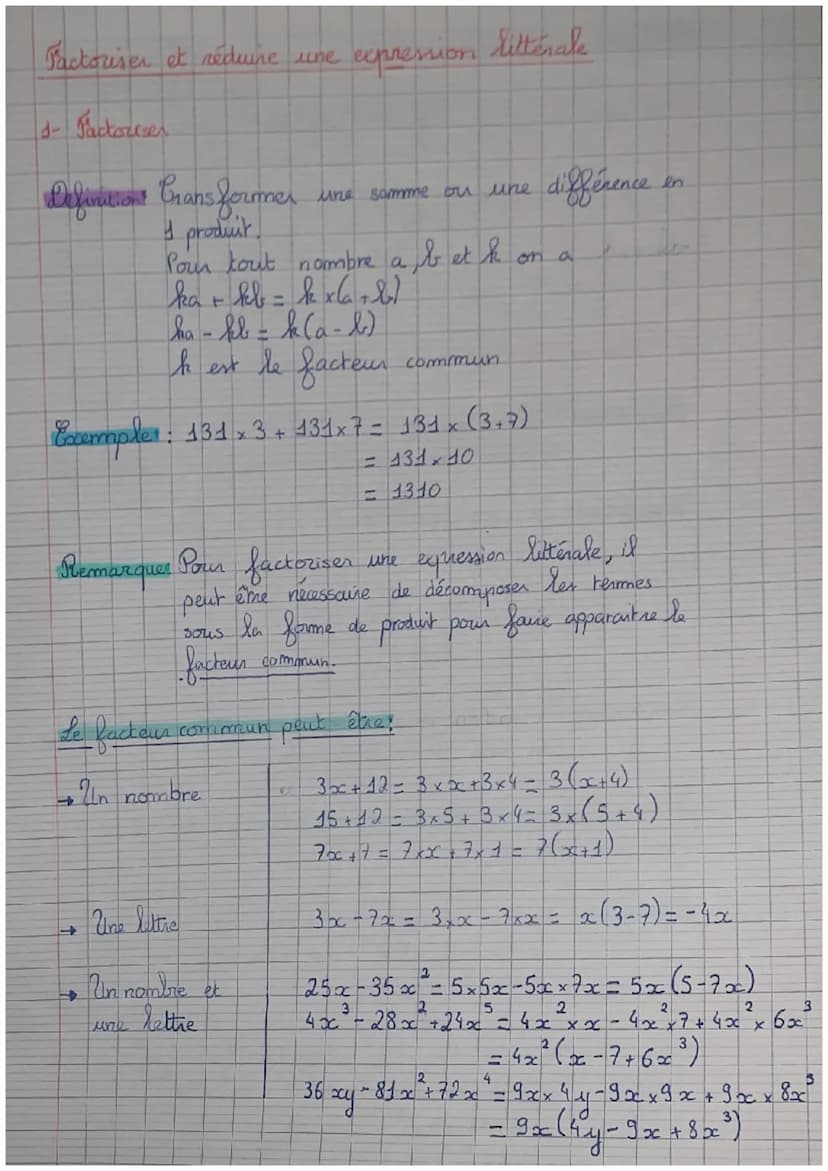 Factoriser et réduire une expression littérale
1- Factoriser
Définition: Transformer une somme ou une différence en
1 produit.
Pour tout nombre a, b et k on a
ka + kb = k x(a+b)
ka - kb = k(a-b)
k est le facteur commun
Exemple: 131 x 3 + 131 x 7 = 131 x (3+7)
= 131 x 10
= 1310
Remarque: Pour factoriser une expression littérale, il
peut être nécessaire de décomposer les termes
sous la forme de produit pour faire apparaitre le
facteur commun.
Le facteur commun peut être:
→ Un nombre
3x+12 = 3 × x + 3×4 = 3(x+4)
15+12 = 3×5 + 3×4 = 3×(5+4)
7x+7 = 7×x + 7×1 = 7(x+1)
→ Une lettre
3x-7x = 3×x - 7×x = x(3-7) = -4x
→ Un nombre et
une lettre
25x - 35x² = 5×5x - 5x×7x = 5x(5-7x)
4x³ - 28x² + 24x⁵ = 4x²×x - 4x²×7 + 4x²×6x³
= 4x²(x-7+6x³)
36xy - 81x² + 72x⁴ = 9x×4y - 9x×9x + 9x×8x³
= 9x(4y-9x+8x³)